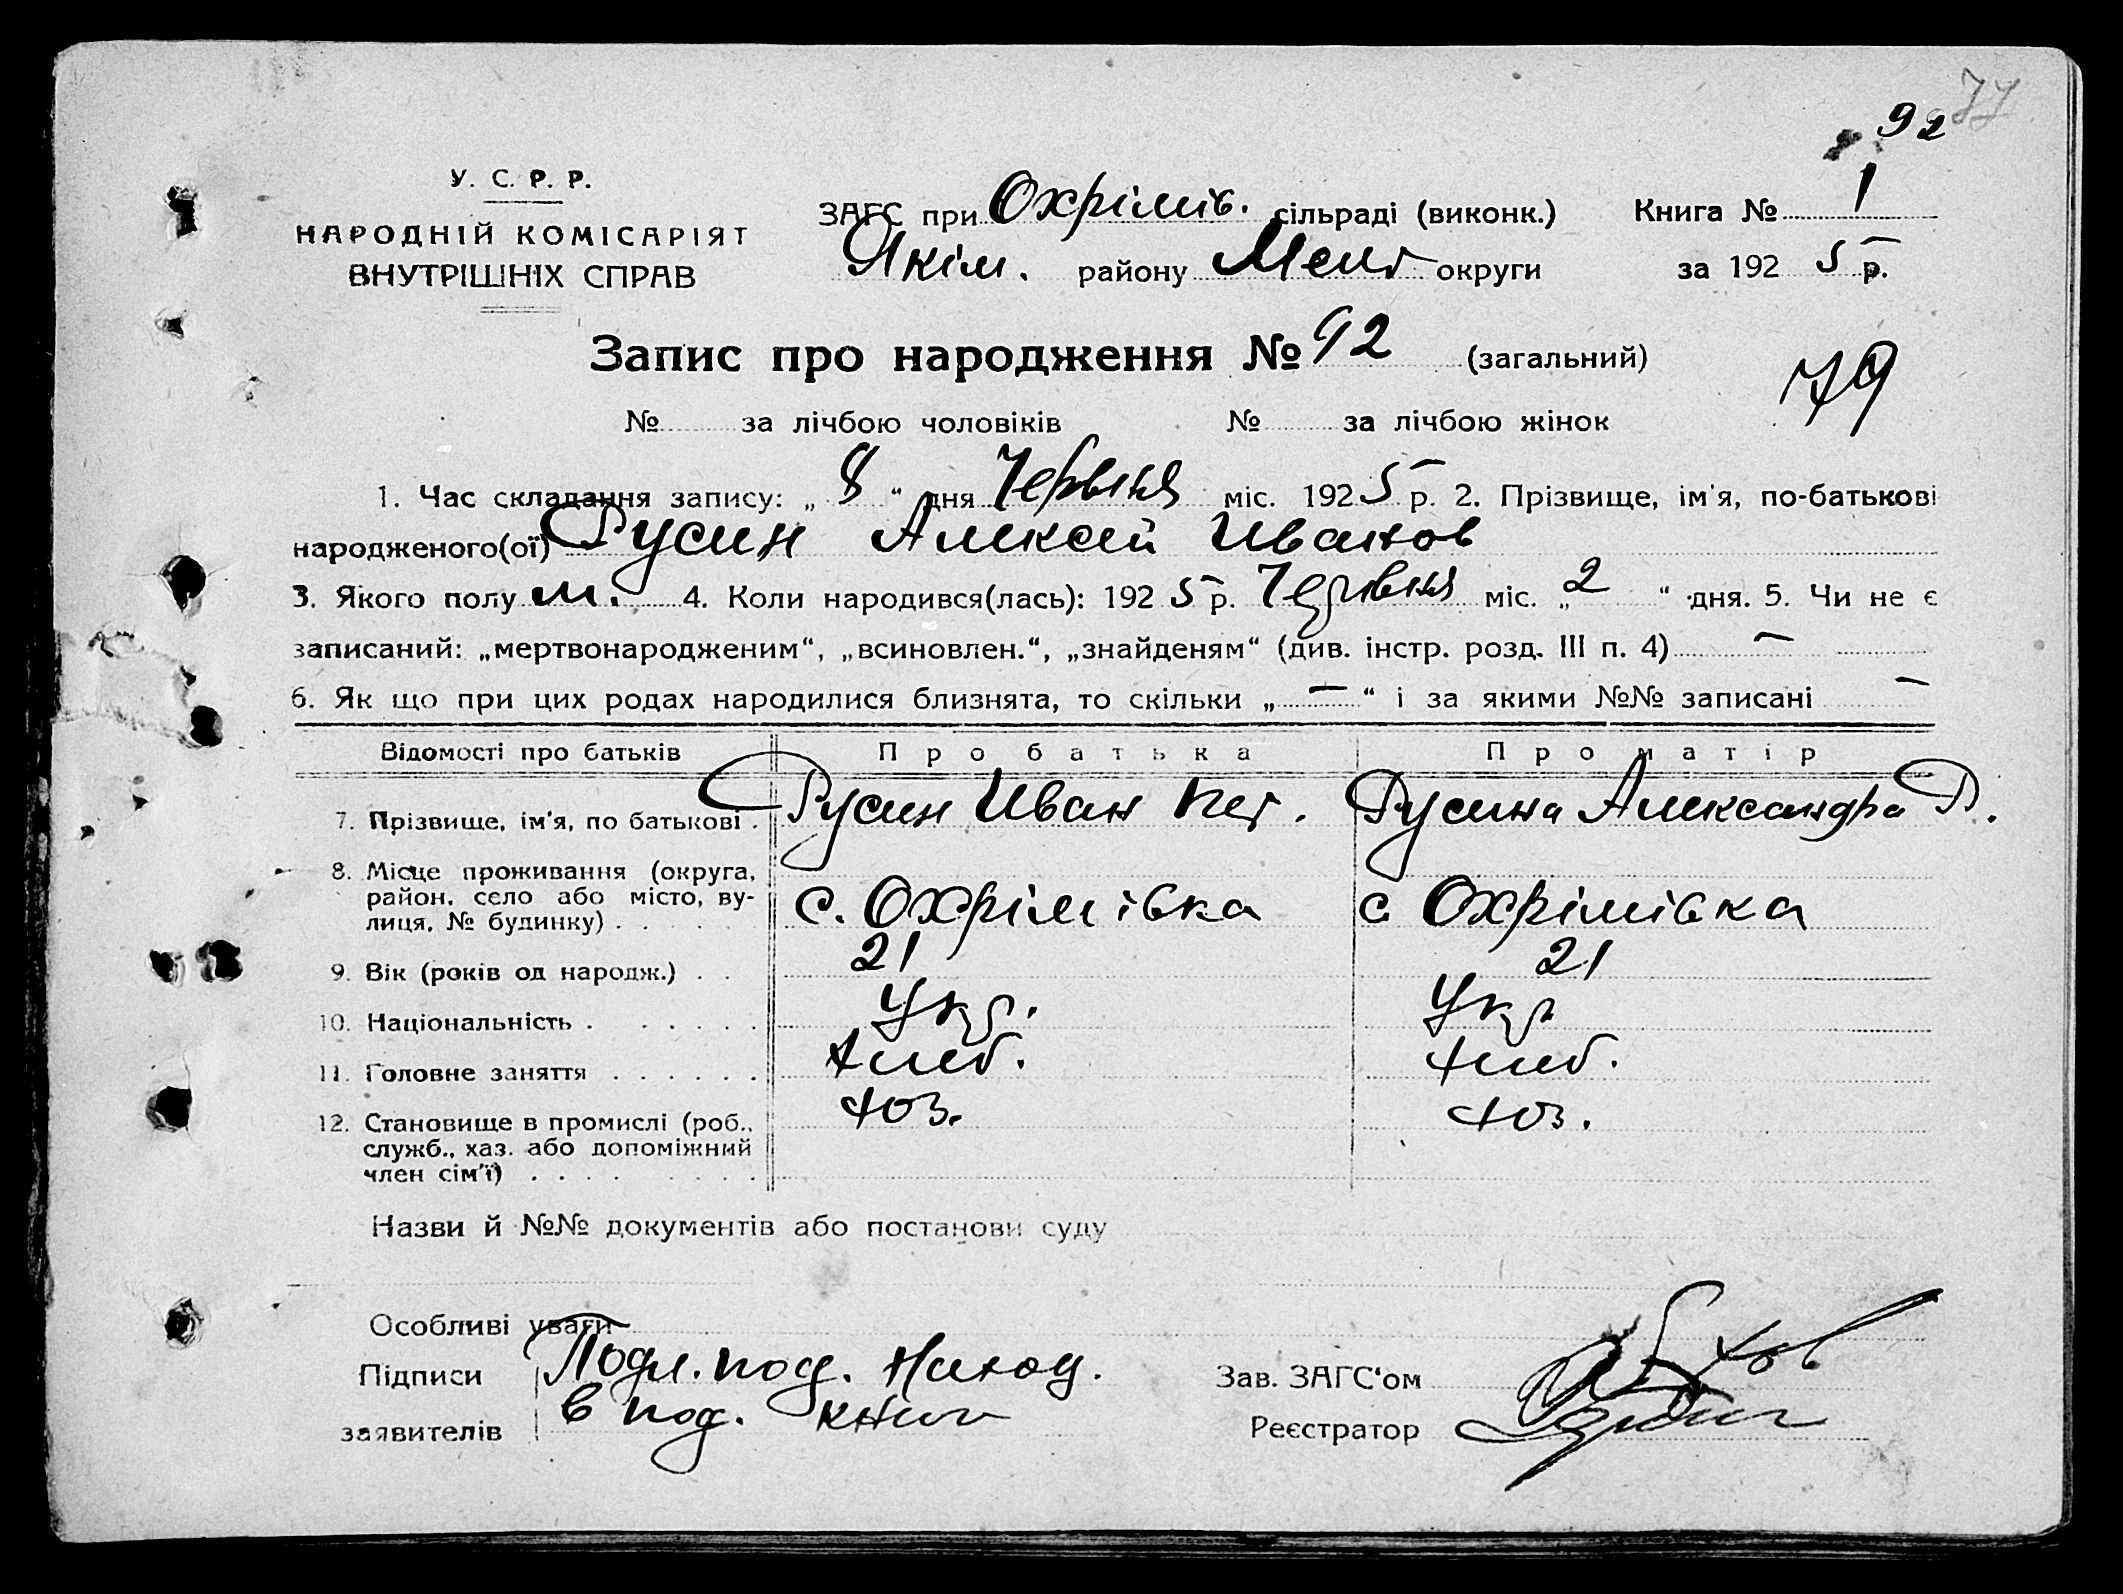 77
92
У. С. Р. Р.
НАРОДНІЙ КОМІСАРІЯТ
ВНУТРІШНІХ СПРАВ
ЗАГС при Охрімів. сільраді (виконк.)
Якім. району Меліт округи
Книга № 1
за 192 5 р.
Запис про народження № 92 (загальний)
79
№ за лічбою чоловіків № за лічбою жінок
1. Час складання запису: „ 8 “ дня Червня міс. 192 5 р. 2. Прізвище, ім'я, по-батькові
народженого(ої) Русин Алексей Иванов
3. Якого полу м. 4. Коли народився(лась): 192 5 р. Червня міс. „ 2 “ дня. 5. Чи не є
записаний: „мертвонародженим“, „всиновлен.“, „знайденям“ (див. інстр. розд. III п. 4) —
6. Як що при цих родах народилися близнята, то скільки „ — “ і за якими №№ записані —
Відомості про батьків Про батька Про матір
7. Прізвище, ім'я, по батькові . Русин Иван Пет. Русина Александра Р.
8. Місце проживання (округа,
район, село або місто, ву-
лиця, № будинку) . . . . . с. Охрімівка с Охрімівка
9. Вік (років од народж.) . . 21 21
10. Національність . . . . . . Укр. Укр
11. Головне заняття . . . . . . хліб. хліб.
12. Становище в промислі (роб.,
служб., хаз. або допоміжний
член сім'ї) . . . . . . . хоз. хоз.
Назви й №№ документів або постанови суду
Особливі уваги
Підписи
заявителів
Подл. под. наход.
в под. книг
Зав. ЗАГС'ом
Реєстратор